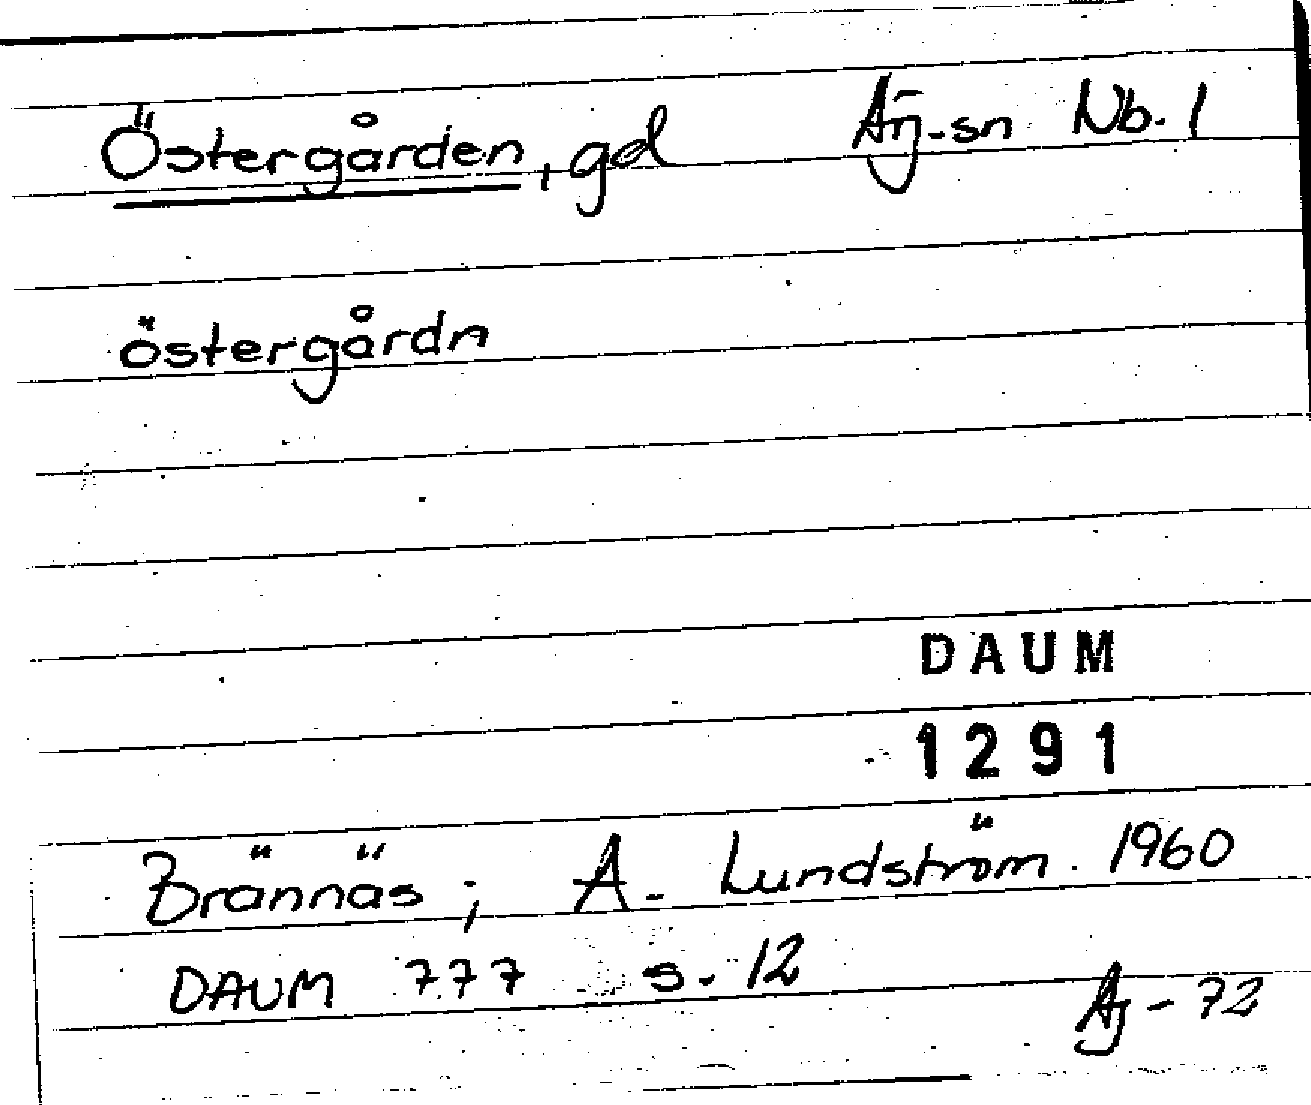 Östergården, gd Arj-sn Nb. 1
östergårdn
DAUM
1291
Brännäs; A. Lundström. 1960
DAUM 777 s. 12
Aj - 72